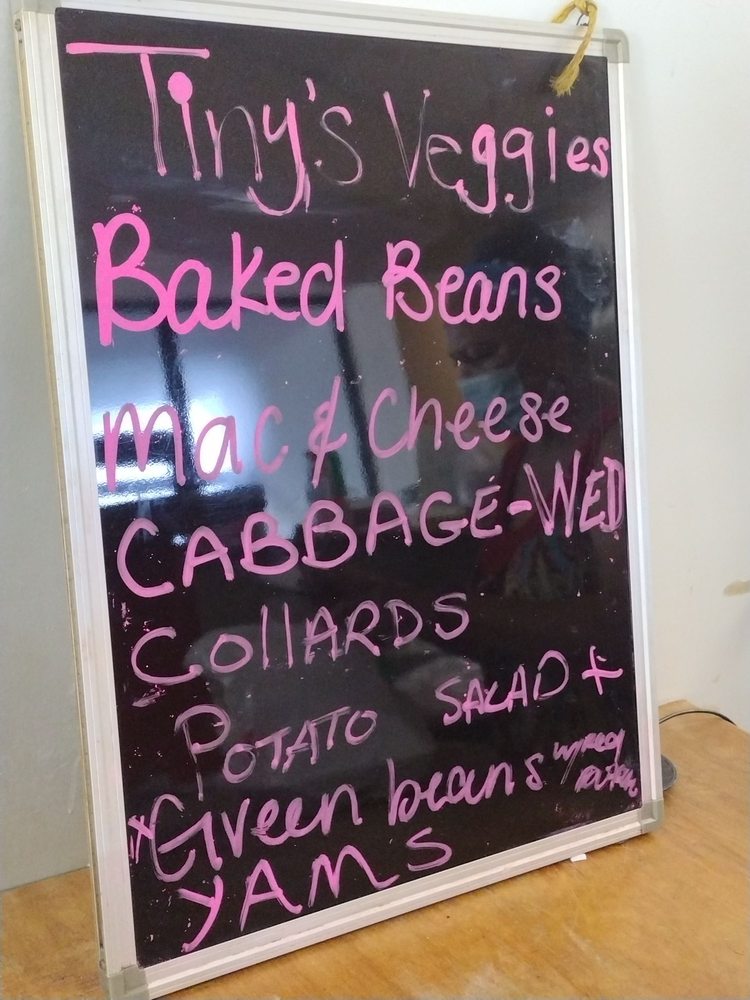 Tiny's Veggies
Baked Beans
Mac & Cheese
CABBAGE-WED
CollARDS
POTATO SALAD +
*Green beans w/Red
YAMS